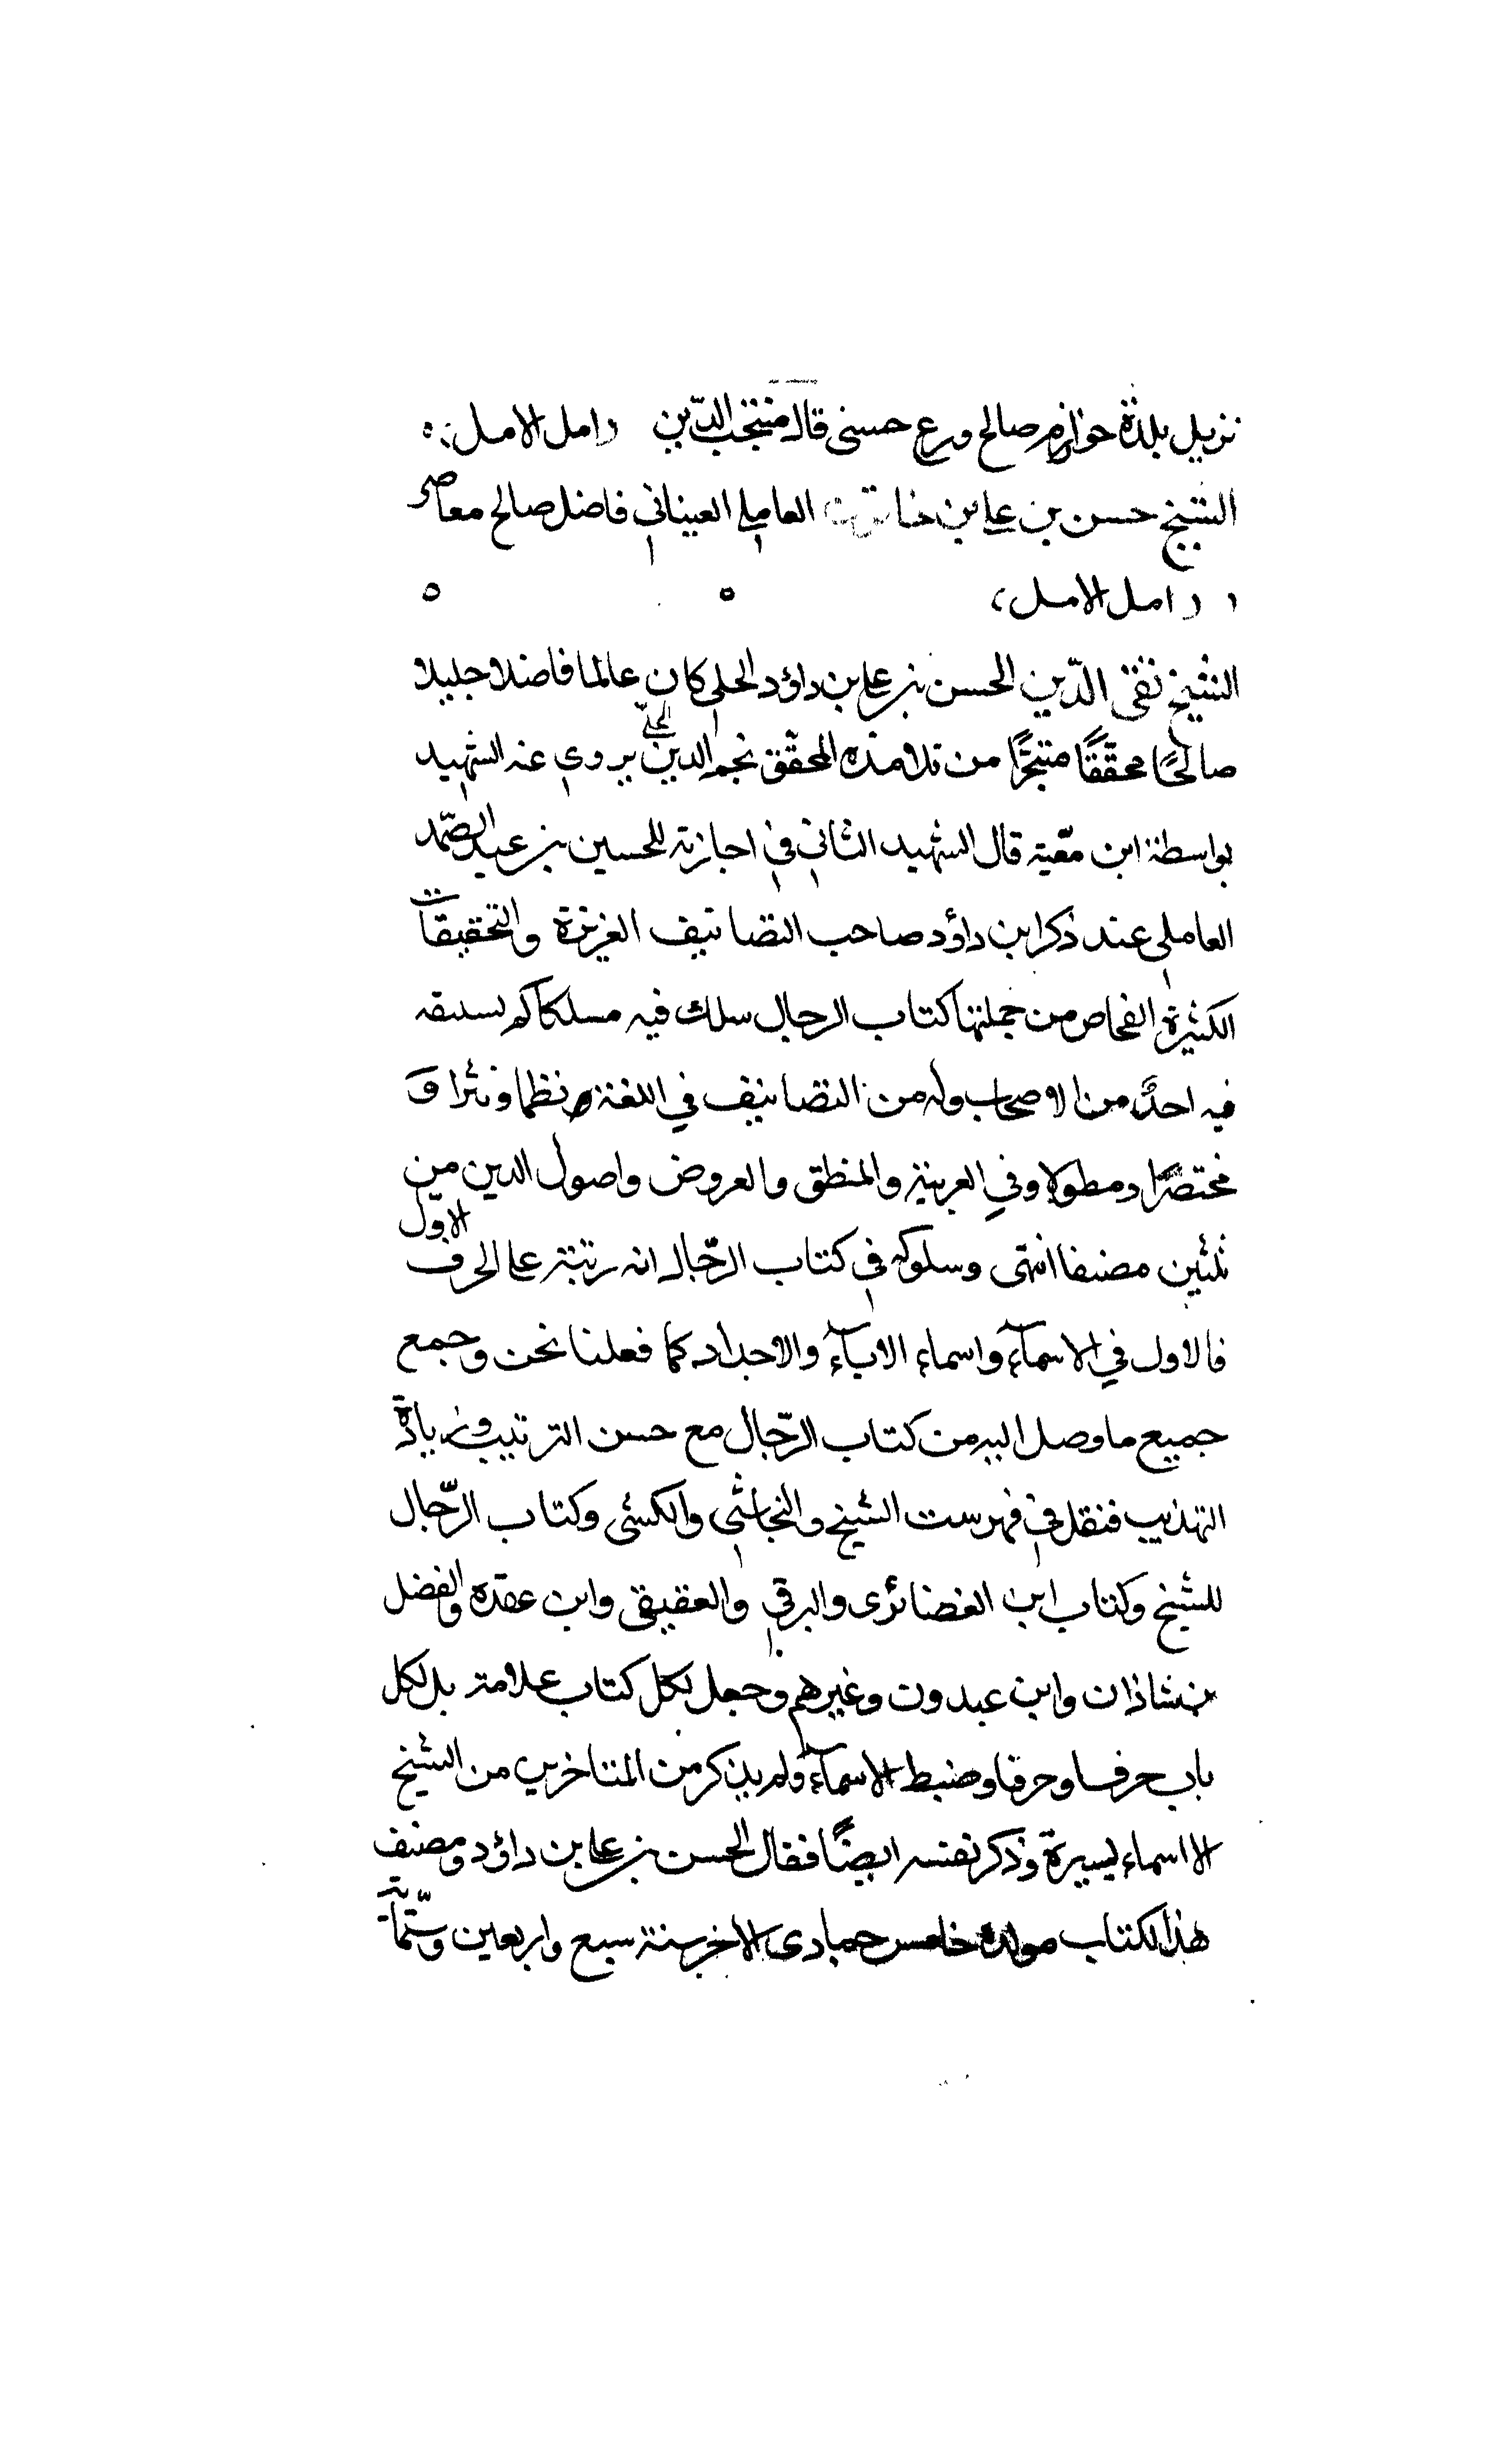 نزيل بلدة خوارزم صالح ورع حسنى قاله منتجب الدّين رامل الامل
الشيخ حسن بن على بن خاتون العاملي العيناثى فاضل صالح معاصر
رامل الامل
الشيخ تقى الدّين الحسن بن على بن داؤد الحلى كان عالما فاضلا جليلا
صالحًا محققًا متبحرًا من تلامذه المحقّق نجم الدين الحلّى يروى عنه الشهيد
بواسطة ابن معّية قال الشهيد الثانى في اجازته للحسين بن عبد الصّمد
العاملى عند ذكر ابن داؤد صاحب التصانيف الغزيزة والتحقيقات
الكثيرة من جملتها كتاب الرجال سلك فيه مسلكا لم يسبقه
فيه احدٌ من الاصحاب وله من التصانيف في نظما ونثرا و
مختصرًا ومطولا وفي العربية والمنطق والعروض واصول الدين من
ثلثين مصنفا انتهى وسلوكه في كتاب الرّجال انه رتبته على الحرف الاول
فالاول في الاسمآء واسماء الابآء والاجداد كما فعلنا نحن وجمع
جميع ما وصل اليه من كتاب الرّجال مع حسن الترتيب وزيادة
التهذيب فنقل في فهرست الشيخ والنجاشي والكشى وكتاب الرّجال
للشيخ وكتاب ابن الغضائرى والبرقي والعقيقى وابن عقده والفضل
بن شاذان وابن عبدون وغيرهم وجعل لكل كتاب علامة بل لكل
باب حرفا وحرفا وضبط الاسمآء ولم يذكر من المتاخرين من الشيخ
الا اسماء يسيرة وذكر نفسه ايضًا فقال الحسن بن على بن داؤد ومصنف
هذا الكتاب مولده خامس جمادى الاخر سنة سبع واربعين وستّمآية